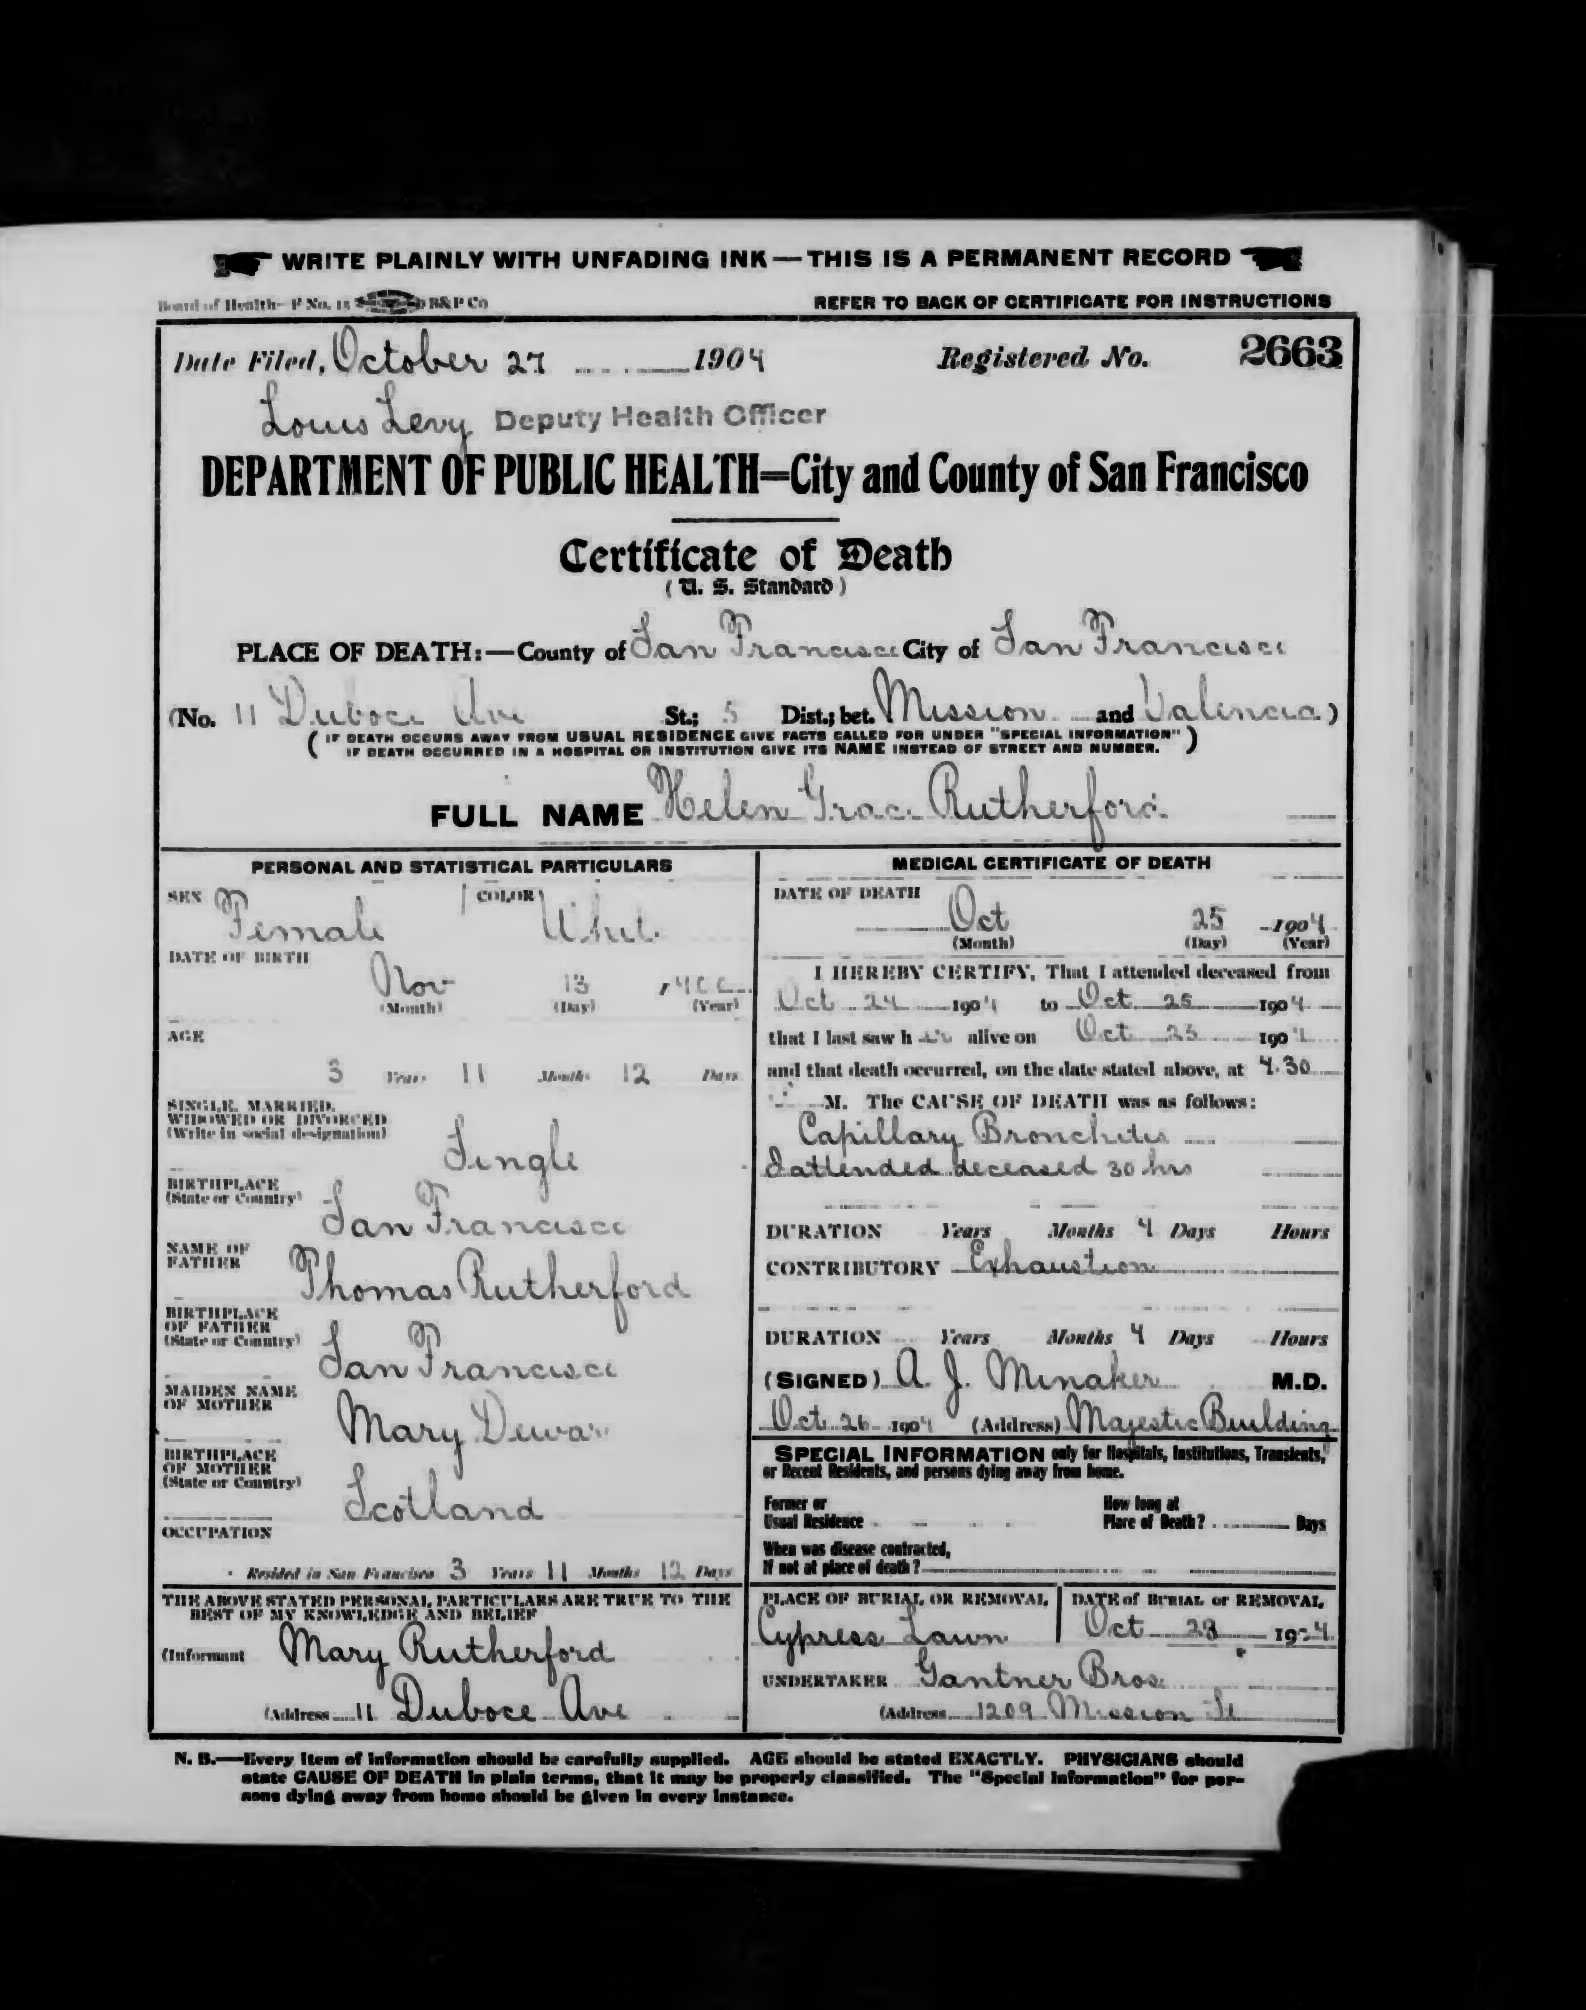 WRITE PLAINLY WITH UNFADING INK—THIS IS A PERMANENT RECORD
Board of Health—F No. 15 B&P Co
REFER TO BACK OF CERTIFICATE FOR INSTRUCTIONS
Date Filed, October 27 1904 Registered No. 2663
Louis Levy Deputy Health Officer
DEPARTMENT OF PUBLIC HEALTH=City and County of San Francisco
Certificate of Death
(U. S. Standard)
PLACE OF DEATH:—County of San Francisco City of San Francisco
(No. 11 Duboce Ave St.; 5 Dist.; bet. Mission and Valencia)
(IF DEATH OCCURS AWAY FROM USUAL RESIDENCE GIVE FACTS CALLED FOR UNDER "SPECIAL INFORMATION"
IF DEATH OCCURRED IN A HOSPITAL OR INSTITUTION GIVE ITS NAME INSTEAD OF STREET AND NUMBER.)
FULL NAME Helen Grace Rutherford
PERSONAL AND STATISTICAL PARTICULARS
SEX Female COLOR White
DATE OF BIRTH
Nov 13
(Month) (Day) (Year)
AGE
3 Years 11 Months 12 Days
SINGLE, MARRIED,
WIDOWED OR DIVORCED
(Write in social designation)
Single
BIRTHPLACE
(State or Country)
San Francisco
NAME OF
FATHER
Thomas Rutherford
BIRTHPLACE
OF FATHER
(State or Country)
San Francisco
MAIDEN NAME
OF MOTHER
Mary Dewar
BIRTHPLACE
OF MOTHER
(State or Country)
Scotland
OCCUPATION
Resided in San Francisco 3 Years 11 Months 12 Days
THE ABOVE STATED PERSONAL PARTICULARS ARE TRUE TO THE
BEST OF MY KNOWLEDGE AND BELIEF
(Informant Mary Rutherford
(Address 11 Duboce Ave
MEDICAL CERTIFICATE OF DEATH
DATE OF DEATH
Oct 25 1904
(Month) (Day) (Year)
I HEREBY CERTIFY, That I attended deceased from
Oct 24 1904 to Oct 25 1904
that I last saw her alive on Oct 25 1904
and that death occurred, on the date stated above, at 4.30
M. The CAUSE OF DEATH was as follows:
Capillary Bronchitis
I attended deceased 30 hrs
DURATION Years Months 4 Days Hours
CONTRIBUTORY Exhaustion
DURATION Years Months 4 Days Hours
(SIGNED) A. J. Minaker M.D.
Oct 26 1904 (Address) Majestic Building
SPECIAL INFORMATION only for Hospitals, Institutions, Transients,
or Recent Residents, and persons dying away from home.
Former or
Usual Residence
How long at
Place of Death? Days
When was disease contracted,
If not at place of death?
PLACE OF BURIAL OR REMOVAL
Cypress Lawn
DATE of BURIAL or REMOVAL
Oct 28 1904
UNDERTAKER Gantner Bros.
(Address 1209 Mission St
N. B.—Every item of information should be carefully supplied. AGE should be stated EXACTLY. PHYSICIANS should
state CAUSE OF DEATH in plain terms, that it may be properly classified. The "Special Information" for per-
sons dying away from home should be given in every instance.